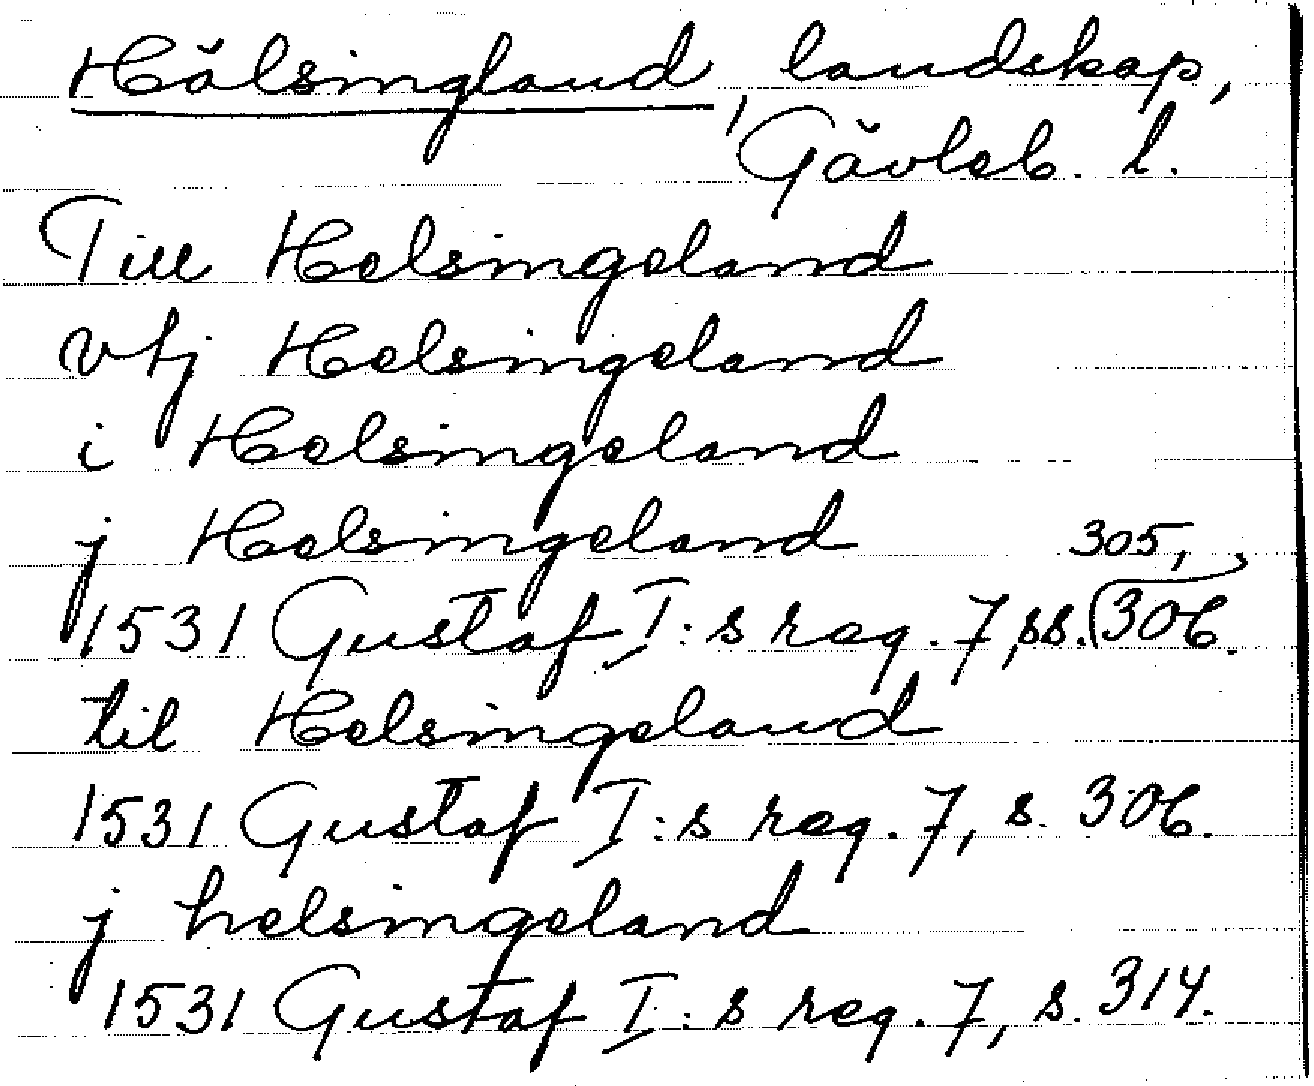 Hälsingland, landskap,
Gävleb. l.
Till Helsingeland
vtj Helsingeland
i Helsingeland
j Helsingeland 305,
1531 Gustaf I:s reg. 7, ss. 306.
til Helsingeland
1531 Gustaf I:s reg. 7, s. 306.
j helsingeland
1531 Gustaf I:s reg. 7, s. 314.